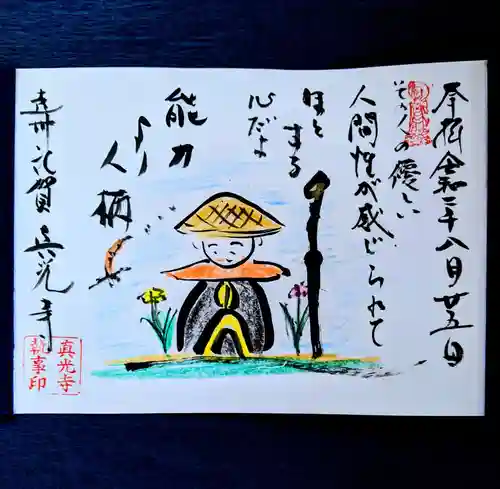 奉拝 令和二年八月廿五日
その人の優しい
人間性が感じられて
ほっとする
心だよ
能力
より
人柄
壱州 礼賀 真光寺
真光寺
執事印